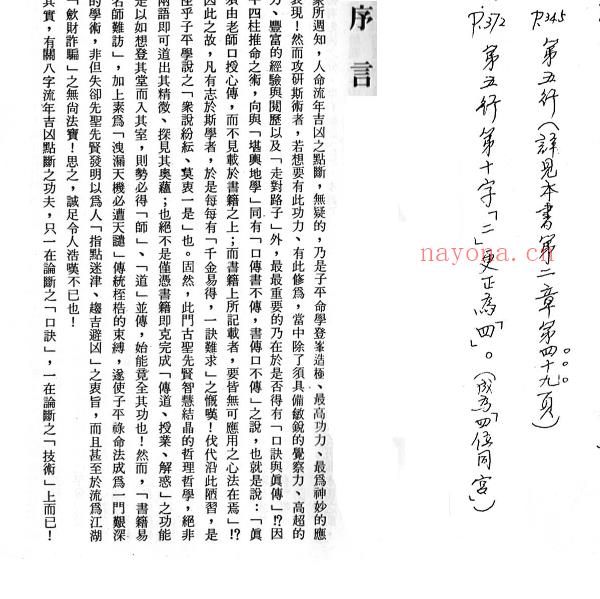 P.345 第五行(詳見本書第二章第四十九頁)
P.372 第五行第十字「二」更正為「四」。(成為四位同宮)
nayona.cn
序言
衆所週知,人命流年吉凶之點斷,無疑的,乃是子平命學登峯造極、最高功力、最爲神妙的應
表現!然而攻研斯術者,若想要有此功力、有此修爲,當中除了須具備敏銳的覺察力、高超的
力、豐富的經驗與閱歷以及「走對路子」外,最最重要的乃在於是否得有「口訣與眞傳」!?因
四柱推命之術,向與「堪輿地學」同有「口傳書不傳,書傳口不傳」之說,也就是說:「眞
須由老師口授心傳,而不見載於書籍之上;而書籍上所記載者,要皆無可應用之心法在焉」!?
因此之故,凡有志於斯學者,於是每每有「千金易得,一訣難求」之慨嘆!伐代沿此陋習,是
乎子平學說之「衆說紛紜、莫衷一是」也。固然,此門古聖先賢智慧結晶的哲理哲學,絕非
兩語即可道出其精微、探見其奧蘊;也絕不是僅憑書籍即克完成「傳道、授業、解惑」之功能
是以如想登其堂而入其室,則勢必得「師」、「道」並傳,始能竟全其功也!然而,「書籍易
名師難訪」,加上素爲「洩漏天機必遭天譴」傳統桎梏的束縛,遂使子平祿命法成爲一門艱深
的學術,非但失卻先聖先賢發明以爲人「指點迷津、趨吉避凶」之衷旨,而且甚至於流爲江湖
「歛財詐騙」之無尚法寶!思之,誠足令人浩嘆不已也!
其實,有關八字流年吉凶點斷之功夫,只一在論斷之「口訣」,一在論斷之「技術」上而已!